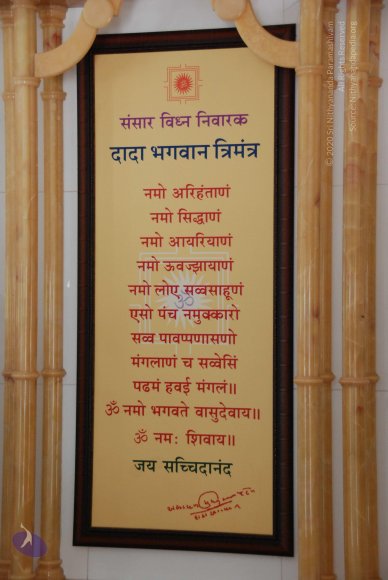 संसार विघ्न निवारक
दादा भगवान त्रिमंत्र
नमो अरिहंताणं
नमो सिद्धाणं
नमो आयरियाणं
नमो ऊवज्झायाणं
नमो लोए सव्वसाहूणं
एसो पंच नमुक्कारो
सव्व पावप्पणासणो
मंगलाणं च सव्वेसिं
पढमं हवई मंगलं॥
ॐ नमो भगवते वासुदेवाय॥
ॐ नमः शिवाय॥
जय सच्चिदानंद
© 2020 Sri Nithyananda Paramashivam
All Rights Reserved
Source: Nithyanandapedia.org